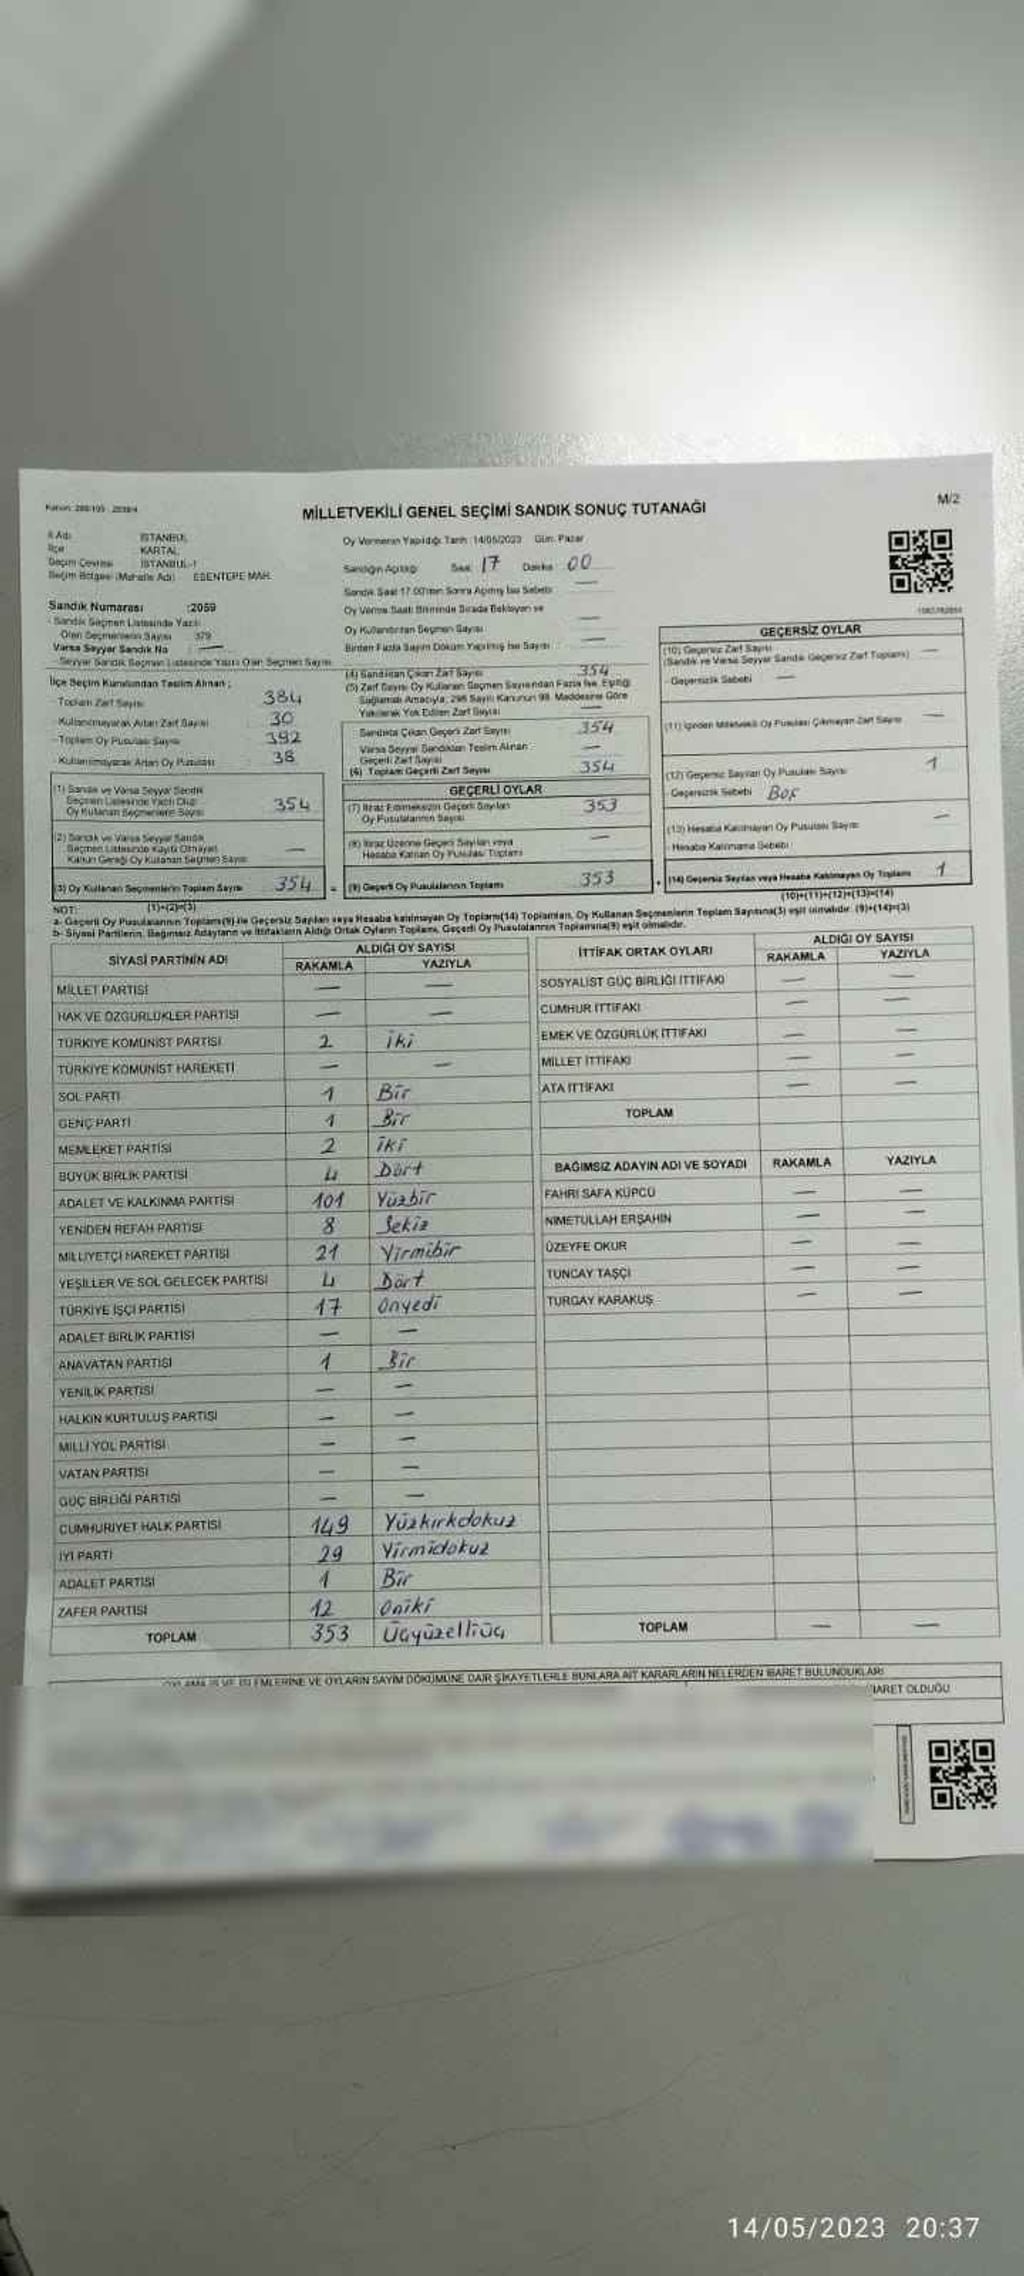 MİLLETVEKİLİ GENEL SEÇİMİ SANDIK SONUÇ TUTANAĞI
M/2
İl Adı : İSTANBUL
İlçe : KARTAL
Seçim Çevresi : İSTANBUL-1
Seçim Bölgesi (Mahalle Adı) : ESENTEPE MAH.
Sandık Numarası :2059
Sandık Seçmen Listesinde Yazılı
Olan Seçmenlerin Sayısı 379
Varsa Seyyar Sandık No : —
Seyyar Sandık Seçmen Listesinde Yazılı Olan Seçmen Sayısı
İlçe Seçim Kurulundan Teslim Alınan ;
Toplam Zarf Sayısı : 384
Kullanılmayarak Artan Zarf Sayısı : 30
Toplam Oy Pusulası Sayısı : 392
Kullanılmayarak Artan Oy Pusulası : 38
(1) Sandık ve Varsa Seyyar Sandık
Seçmen Listesinde Yazılı Olup
Oy Kullanan Seçmenlerin Sayısı 354
(2) Sandık ve Varsa Seyyar Sandık
Seçmen Listesinde Kayıtlı Olmayan
Kanun Gereği Oy Kullanan Seçmen Sayısı —
(3) Oy Kullanan Seçmenlerin Toplam Sayısı 354 =
(1)+(2)=(3)
Oy Vermenin Yapıldığı Tarih :14/05/2023 Gün: Pazar
Sandığın Açıldığı Saat: 17 Dakika: 00
Sandık Saat 17.00'den Sonra Açılmış İse Sebebi : —
Oy Verme Saati Bitiminde Sırada Bekleyen ve
Oy Kullandırılan Seçmen Sayısı : —
Birden Fazla Sayım Döküm Yapılmış İse Sayısı : —
(4) Sandıktan Çıkan Zarf Sayısı : 354
(5) Zarf Sayısı Oy Kullanan Seçmen Sayısından Fazla İse, Eşitliği
Sağlamak Amacıyla, 298 Sayılı Kanunun 98. Maddesine Göre
Yakılarak Yok Edilen Zarf Sayısı : —
Sandıkta Çıkan Geçerli Zarf Sayısı : 354
Varsa Seyyar Sandıktan Teslim Alınan
Geçerli Zarf Sayısı : —
(6) Toplam Geçerli Zarf Sayısı : 354
GEÇERLİ OYLAR
(7) İtiraz Edilmeksizin Geçerli Sayılan
Oy Pusulalarının Sayısı 353
(8) İtiraz Üzerine Geçerli Sayılan veya
Hesaba Katılan Oy Pusulası Toplamı —
(9) Geçerli Oy Pusulalarının Toplamı 353 +
GEÇERSİZ OYLAR
(10) Geçersiz Zarf Sayısı
(Sandık ve Varsa Seyyar Sandık Geçersiz Zarf Toplamı) —
Geçersizlik Sebebi : —
(11) İçinden Milletvekili Oy Pusulası Çıkmayan Zarf Sayısı —
(12) Geçersiz Sayılan Oy Pusulası Sayısı 1
Geçersizlik Sebebi : Boş
(13) Hesaba Katılmayan Oy Pusulası Sayısı —
Hesaba Katılmama Sebebi :
(14) Geçersiz Sayılan veya Hesaba Katılmayan Oy Toplamı 1
(10)+(11)+(12)+(13)=(14)
NOT:
a- Geçerli Oy Pusulalarının Toplamı(9) ile Geçersiz Sayılan veya Hesaba katılmayan Oy Toplamı(14) Toplamları, Oy Kullanan Seçmenlerin Toplam Sayısına(3) eşit olmalıdır. (9)+(14)=(3)
b- Siyasi Partilerin, Bağımsız Adayların ve İttifakların Aldığı Ortak Oyların Toplamı, Geçerli Oy Pusulalarının Toplamına(9) eşit olmalıdır.
SİYASİ PARTİNİN ADI ALDIĞI OY SAYISI
RAKAMLA YAZIYLA
MİLLET PARTİSİ — —
HAK VE ÖZGÜRLÜKLER PARTİSİ — —
TÜRKİYE KOMÜNİST PARTİSİ 2 iki
TÜRKİYE KOMÜNİST HAREKETİ — —
SOL PARTİ 1 Bir
GENÇ PARTİ 1 Bir
MEMLEKET PARTİSİ 2 İki
BÜYÜK BİRLİK PARTİSİ 4 Dört
ADALET VE KALKINMA PARTİSİ 101 Yüzbir
YENİDEN REFAH PARTİSİ 8 Sekiz
MİLLİYETÇİ HAREKET PARTİSİ 21 Yirmibir
YEŞİLLER VE SOL GELECEK PARTİSİ 4 Dört
TÜRKİYE İŞÇİ PARTİSİ 17 Onyedi
ADALET BİRLİK PARTİSİ — —
ANAVATAN PARTİSİ 1 Bir
YENİLİK PARTİSİ — —
HALKIN KURTULUŞ PARTİSİ — —
MİLLİ YOL PARTİSİ — —
VATAN PARTİSİ — —
GÜÇ BİRLİĞİ PARTİSİ — —
CUMHURİYET HALK PARTİSİ 149 Yüzkırkdokuz
İYİ PARTİ 29 Yirmidokuz
ADALET PARTİSİ 1 Bir
ZAFER PARTİSİ 12 Oniki
TOPLAM 353 Üçyüzelliüç
İTTİFAK ORTAK OYLARI ALDIĞI OY SAYISI
RAKAMLA YAZIYLA
SOSYALİST GÜÇ BİRLİĞİ İTTİFAKI — —
CUMHUR İTTİFAKI — —
EMEK VE ÖZGÜRLÜK İTTİFAKI — —
MİLLET İTTİFAKI — —
ATA İTTİFAKI — —
TOPLAM
BAĞIMSIZ ADAYIN ADI VE SOYADI RAKAMLA YAZIYLA
FAHRİ SAFA KÜPCÜ — —
NİMETULLAH ERŞAHİN — —
ÜZEYFE OKUR — —
TUNCAY TAŞÇI — —
TURGAY KARAKUŞ — —
TOPLAM — —
İŞLEMLERİNE VE OYLARIN SAYIM DÖKÜMÜNE DAİR ŞİKAYETLERLE BUNLARA AİT KARARLARIN NELERDEN İBARET BULUNDUKLARI
İBARET OLDUĞU
14/05/2023 20:37